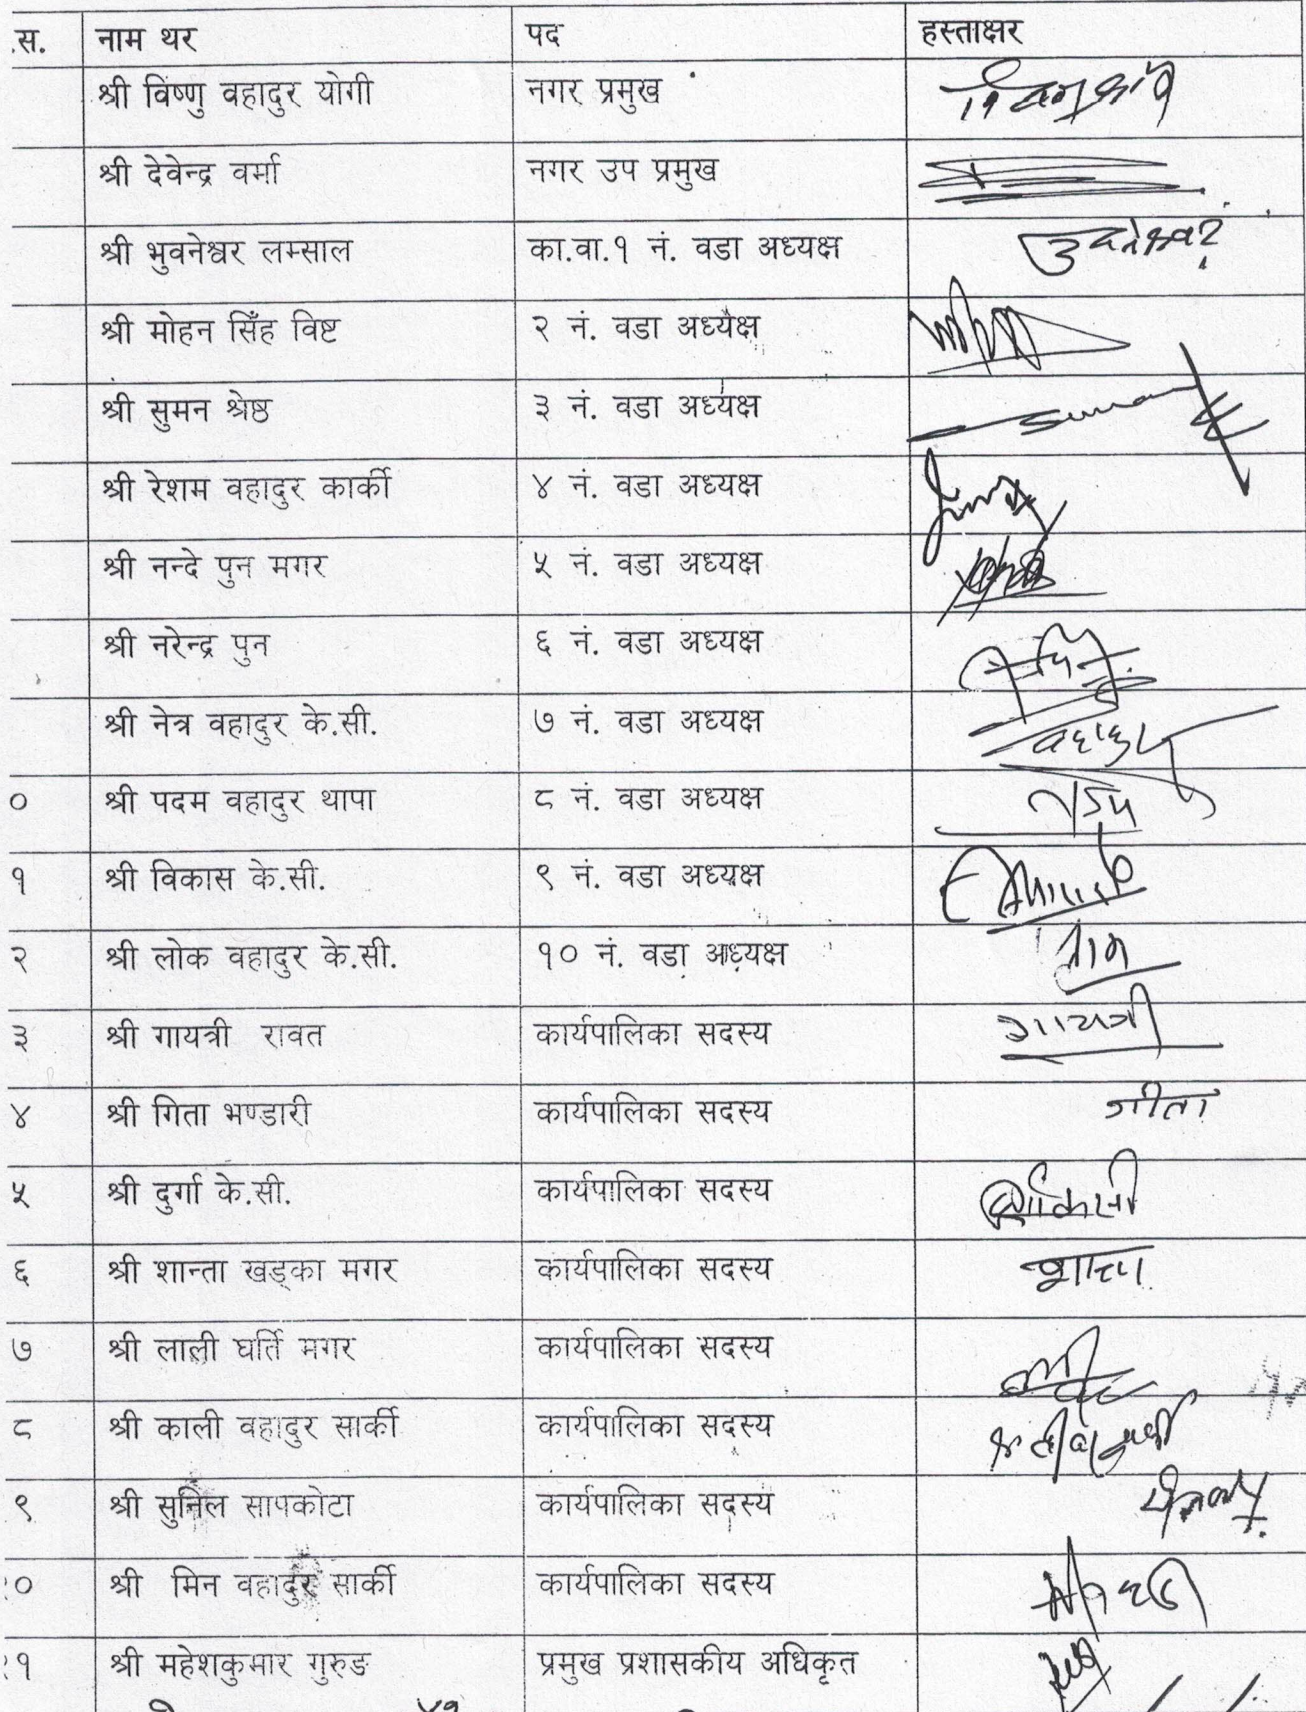 .स. नाम थर पद हस्ताक्षर
श्री विष्णु वहादुर योगी नगर प्रमुख
श्री देवेन्द्र वर्मा नगर उप प्रमुख
श्री भुवनेश्वर लम्साल का.वा.१ नं. वडा अध्यक्ष
श्री मोहन सिँह विष्ट २ नं. वडा अध्यक्ष
श्री सुमन श्रेष्ठ ३ नं. वडा अध्यक्ष
श्री रेशम वहादुर कार्की ४ नं. वडा अध्यक्ष
श्री नन्दे पुन मगर ५ नं. वडा अध्यक्ष
श्री नरेन्द्र पुन ६ नं. वडा अध्यक्ष
श्री नेत्र वहादुर के.सी. ७ नं. वडा अध्यक्ष
० श्री पदम वहादुर थापा ८ नं. वडा अध्यक्ष
१ श्री विकास के.सी. ९ नं. वडा अध्यक्ष
२ श्री लोक वहादुर के.सी. १० नं. वडा अध्यक्ष
३ श्री गायत्री रावत कार्यपालिका सदस्य गायत्री
४ श्री गिता भण्डारी कार्यपालिका सदस्य गीता
५ श्री दुर्गा के.सी. कार्यपालिका सदस्य
६ श्री शान्ता खड्का मगर कार्यपालिका सदस्य
७ श्री लाली घर्ति मगर कार्यपालिका सदस्य
८ श्री काली वहादुर सार्की कार्यपालिका सदस्य
९ श्री सुनिल सापकोटा कार्यपालिका सदस्य
० श्री मिन वहादुर सार्की कार्यपालिका सदस्य
१ श्री महेशकुमार गुरुङ प्रमुख प्रशासकीय अधिकृत